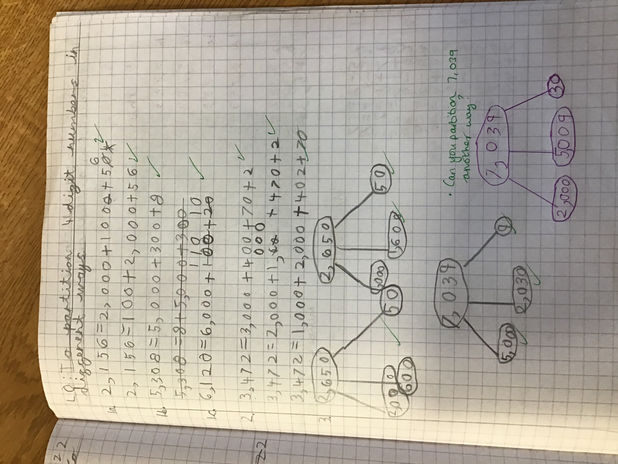 LO: To partition 4 digit numbers in
different ways.
1a. 2,156=2,000+100+56
2,156=100+2,000+56
1b. 5,308=5,000+300+8
5,308=8+5,000+300
1c. 6,120=6,000+110+10
2. 3,472=3,000+400+70+2
3,472=2,000+1,000+470+2
3,472=1,000+2,000+402+70
3. 2,650
2,000
600
50
2,650
1,000
1,600
50
7,039
5,000
2,030
9
· Can you partition 7,039
another way?
7,039
2,000
5009
30